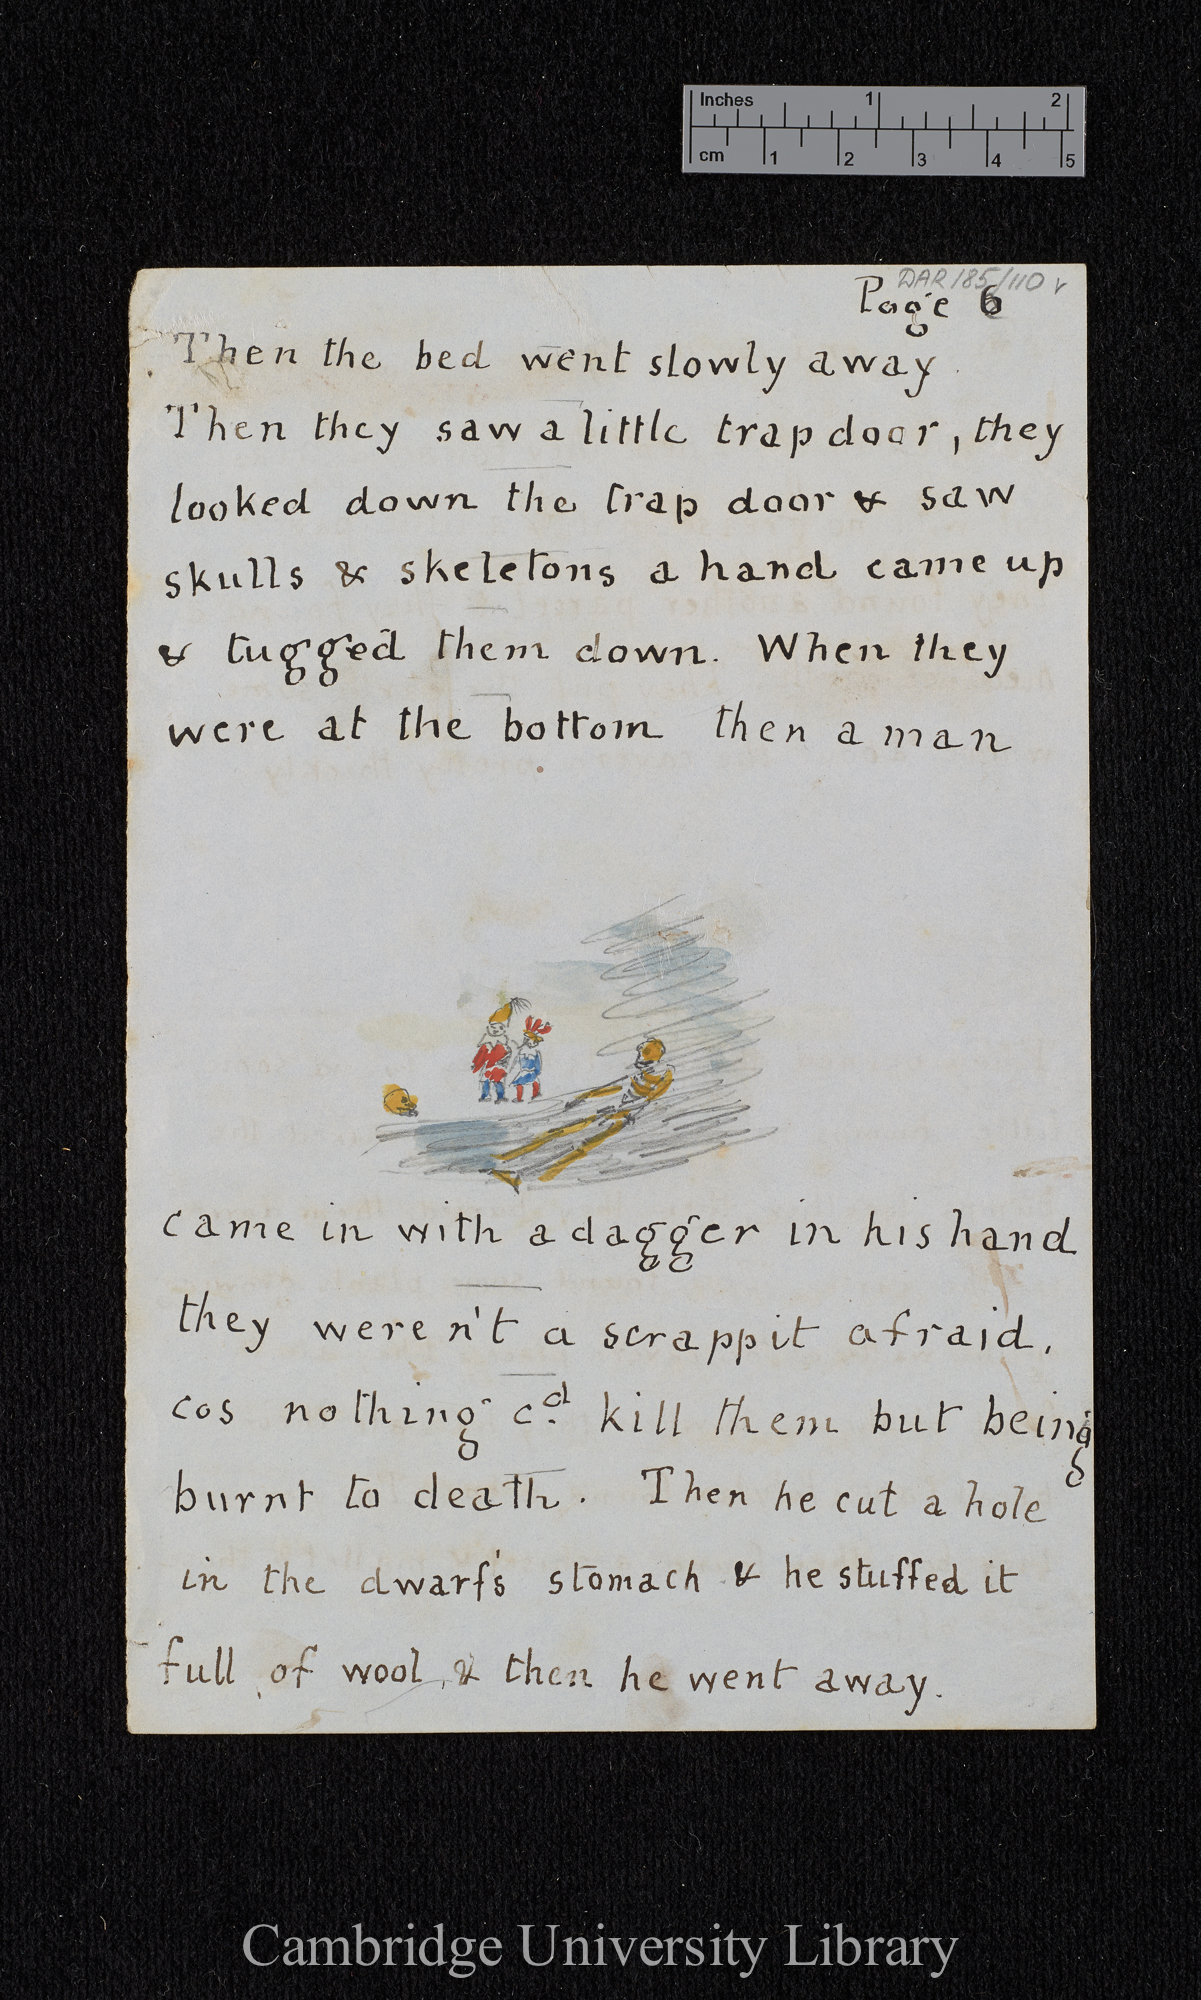 Inches 1 2
cm 1 2 3 4 5
DAR 185/110 v
Page 6
Then the bed went slowly away.
Then they saw a little trap door, they
looked down the trap door & saw
skulls & skeletons a hand came up
& tugged them down. When they
were at the bottom then a man
came in with a dagger in his hand
they weren't a scrappit afraid,
cos nothing cd. kill them but being
burnt to death. Then he cut a hole
in the dwarf's stomach & he stuffed it
full of wool, & then he went away.
Cambridge University Library